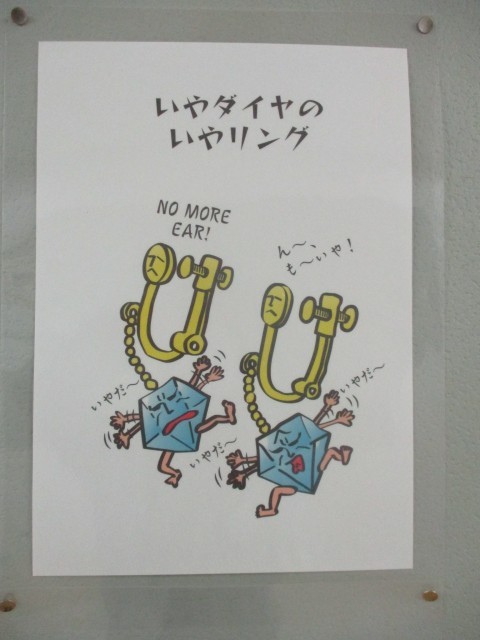 いやダイヤの
いやリング
NO MORE
EAR!
ん〜、
も〜いや！
いやだ〜
いやだ〜
いやだ〜